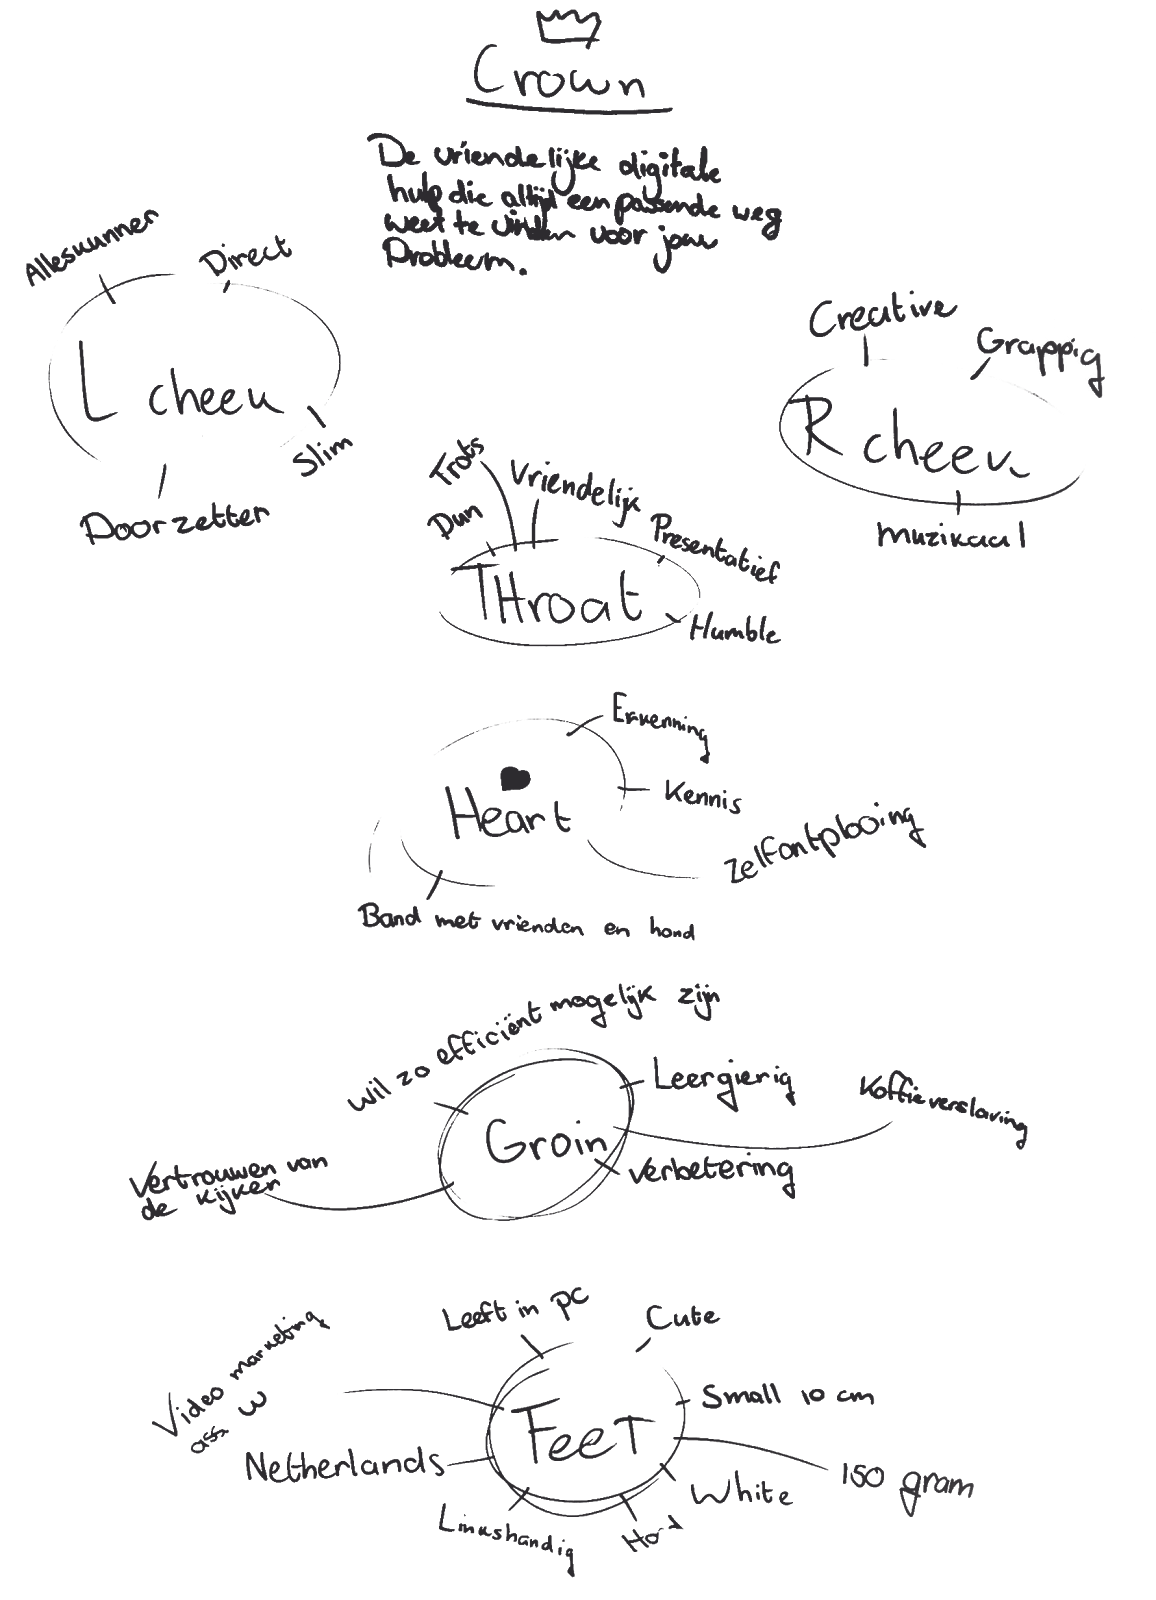 Crown
De vriendelijke digitale
hulp die altijd een passende weg
weet te vinden voor jouw
Probleem.
Alleskunner
Direct
L cheek
Slim
Doorzetter
Creative
Grappig
R cheek
muzikaal
Trots
Vriendelijk
Dun
Presentatief
THroat
Humble
Erkenning
Kennis
Heart
Zelfontplooing
Band met vrienden en hond
Wil zo efficiënt mogelijk zijn
Leergierig
Koffieverslaving
Groin
Verbetering
Vertrouwen van
de kijker
Leeft in PC
Cute
Video marketing
ass
Small 10 cm
FeeT
Netherlands
150 gram
White
Linkshandig